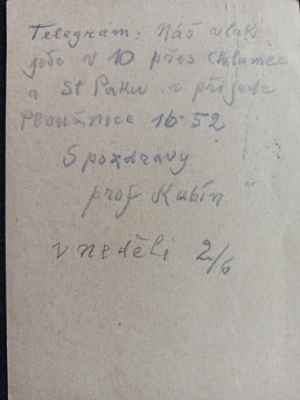 Telegram. Náš vlak
jede v 10 přes Chlumec
a St Paku a přijede
16 52
S pozdravy
prof Kubín
v neděli 2/6